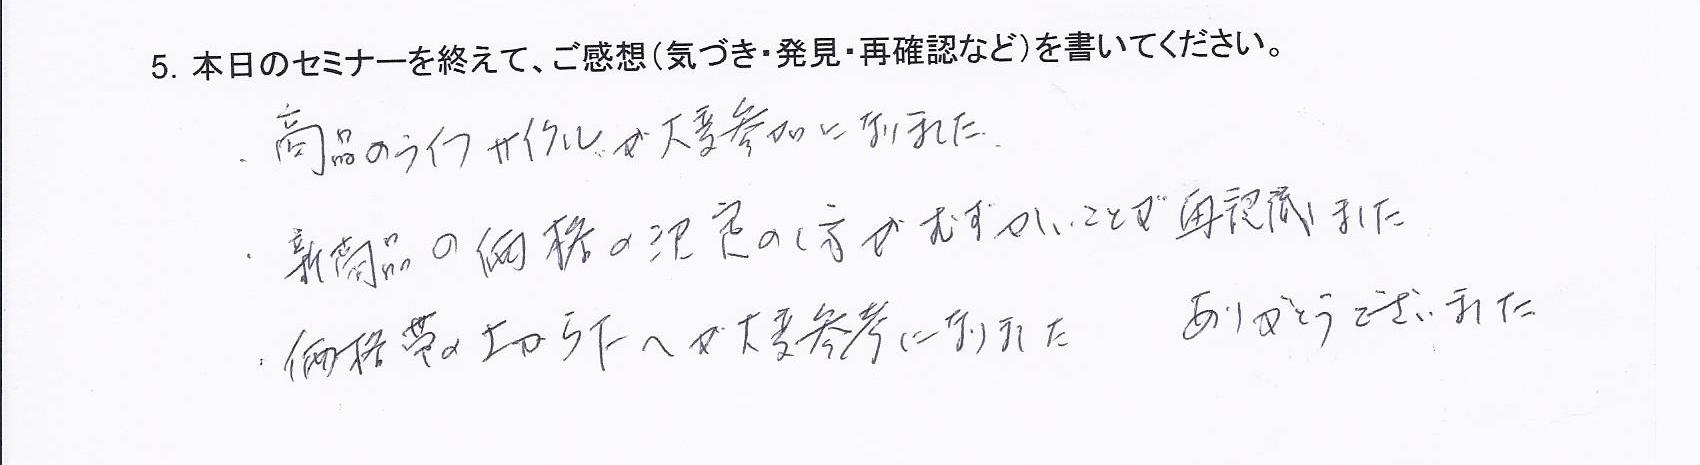 5. 本日のセミナーを終えて、ご感想（気づき・発見・再確認など）を書いてください。
・商品のライフサイクルが大変参加になりました。
・新商品の価格の決定の仕方がむずかしいことが再認識しました
・価格帯の上から下へが大変参考になりました　ありがとうございました